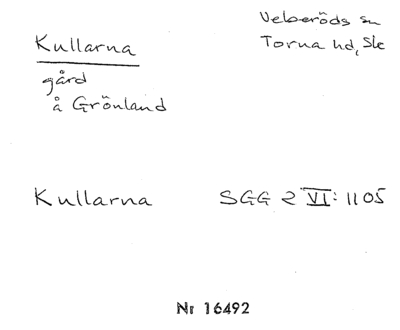 Kullarna
gård
å Grönland
Veberöds sn
Torna hd, Sk
Kullarna SGG 2 VI: 1105
Nr 16492